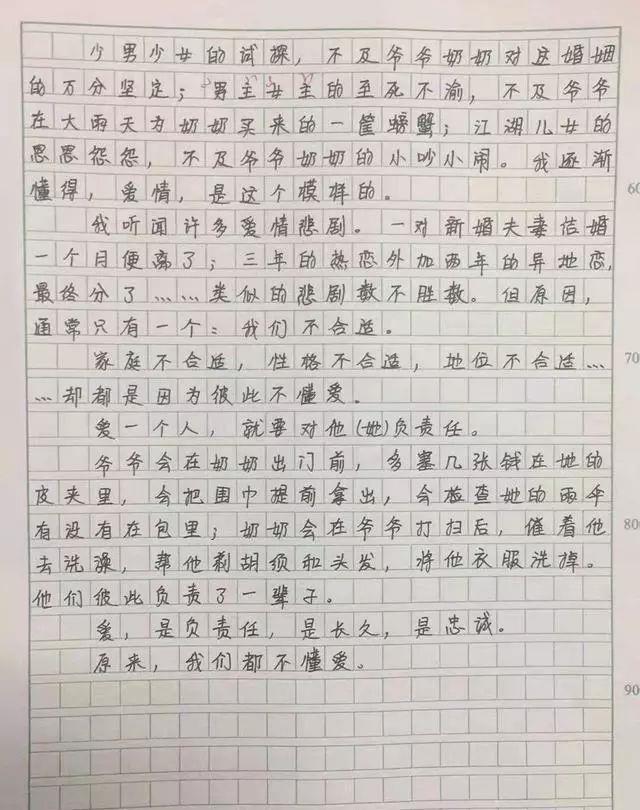 少男少女的试探，不及爷爷奶奶对这婚姻
的万分坚定；男主女主的至死不渝，不及爷爷
在大雨天为奶奶买来的一筐螃蟹；江湖儿女的
恩恩怨怨，不及爷爷奶奶的小吵小闹。我逐渐
懂得，爱情，是这个模样的。
60
我听闻许多爱情悲剧。一对新婚夫妻结婚
一个月便离了；三年的热恋外加两年的异地恋，
最终分了……类似的悲剧数不胜数。但原因，
通常只有一个：我们不合适。
家庭不合适，性格不合适，地位不合适…
70
…却都是因为彼此不懂爱。
爱一个人，就要对他(她)负责任。
爷爷会在奶奶出门前，多塞几张钱在她的
皮夹里，会把围巾提前拿出，会检查她的雨伞
有没有在包里；奶奶会在爷爷打扫后，催着他
800
去洗澡，帮他剃胡须和头发，将他衣服洗掉。
他们彼此负责了一辈子。
爱，是负责任，是长久，是忠诚。
原来，我们都不懂爱。
900